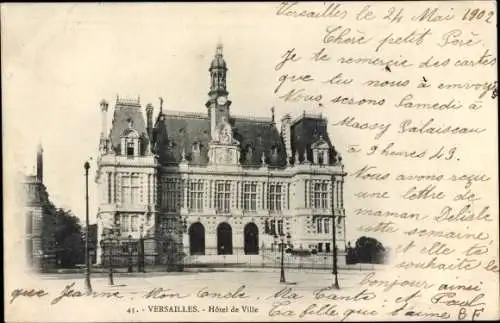 Versailles le 24 Mai 1902
Chère petit
Je te remercie des cartes
que tu nous a envoyé
Nous serons Samedi à
Massy Palaiseau
à 9 heures 43.
Nous avons reçu
une lettre de
maman Delisle
cette semaine
et elle te
souhaite le
bonjour ainsi
que Jeanne, Mon Oncle, Ma Tante et Paul
Ca fait que
E F
45. - VERSAILLES. - Hôtel de Ville